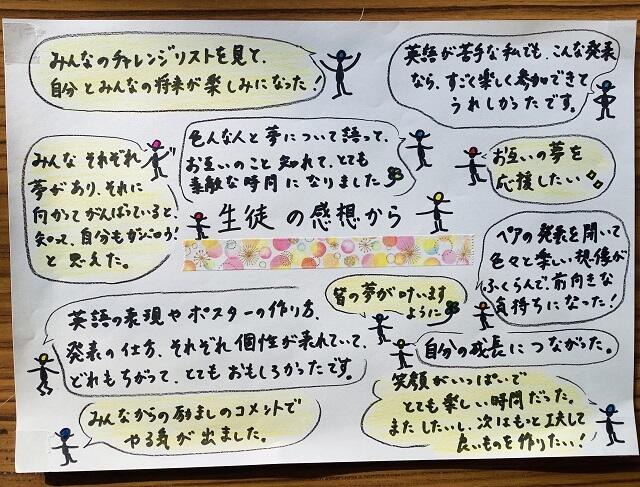 みんなのチャレンジリストを見て、
自分とみんなの将来が楽しみになった！
英語が苦手な私でも、こんな発表
なら、すごく楽しく参加できて
うれしかったです。
色んな人と夢について語って、
お互いのこと知れて、とても
素敵な時間になりました
みんなそれぞれ
夢があり、それに
向かってがんばっていると、
知って、自分もがんばろう！
と思えた。
お互いの夢を
応援したい
生徒の感想から
ペアの発表を聞いて
色々と楽しい想像が
ふくらんで、前向きな
気持ちになった！
皆の夢が叶います
ように
英語の表現やポスターの作り方、
発表の仕方、それぞれ個性が表れていて、
どれもちがって、とてもおもしろかったです。
自分の成長につながった。
みんなからの励ましのコメントで
やる気が出ました。
笑顔がいっぱいで
とても楽しい時間だった。
またしたいし、次はもっと工夫して
良いものを作りたい！